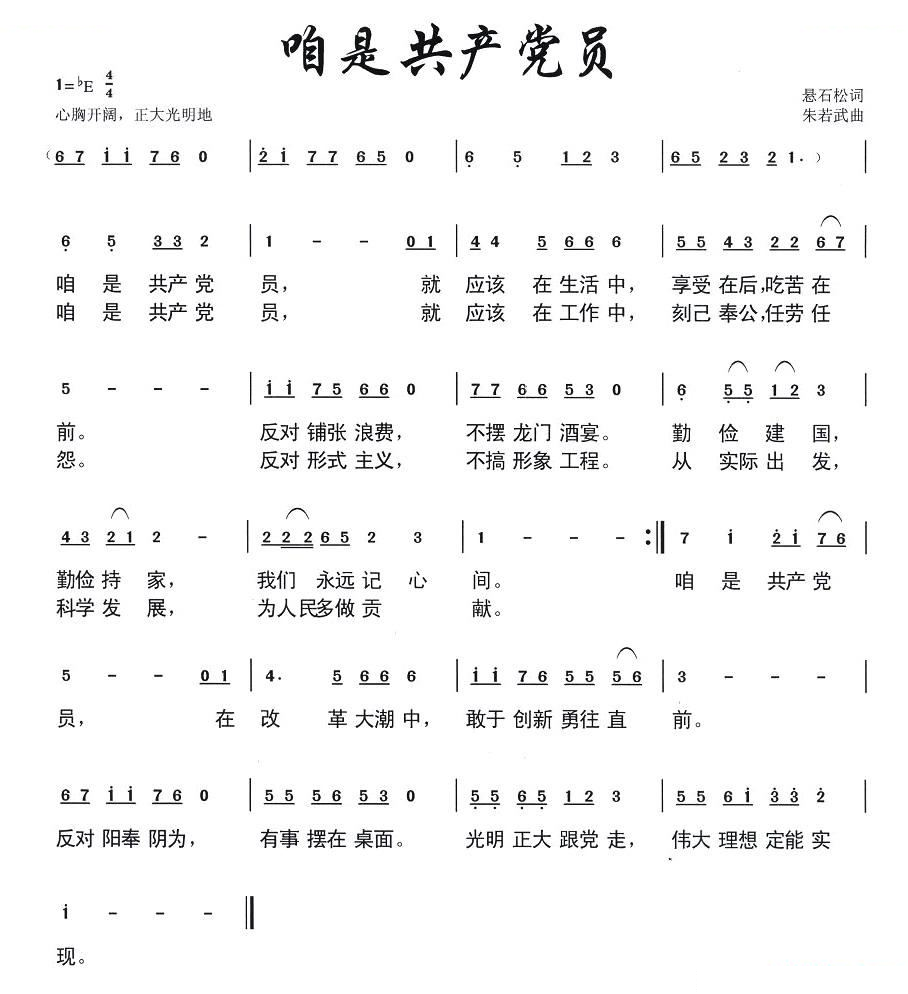 咱是共产党员
1=♭E 4/4
心胸开阔，正大光明地
悬石松词
朱若武曲
(6 7 i i 7 6 0 | 2̇ i 7 7 6 5 0 | 6̣ 5̣ 1 2 3 | 6 5 2 3 2 1· ) |
6̣ 5̣ 3 3 2 | 1 - - 0 1 | 4 4 5 6 6 6 | 5 5 4 3 2 2 6 7 |
咱 是 共产 党 员， 就 应该 在 生活 中， 享受 在后，吃苦 在
咱 是 共产 党 员， 就 应该 在 工作 中， 刻己 奉公，任劳 任
5 - - - | i i 7 5 6 6 0 | 7 7 6 6 5 3 0 | 6̣ 5̣ 5̣ 1 2 3 |
前。 反对 铺张 浪费， 不摆 龙门 酒宴。 勤 俭 建 国，
怨。 反对 形式 主义， 不搞 形象 工程。 从 实际 出 发，
4 3 2 1 2 - | 2 2 2 6 5 2 3 | 1 - - - :‖ 7 i 2̇ i 7 6 |
勤俭 持 家， 我们 永远 记 心 间。 咱 是 共产 党
科学 发 展， 为人民多做 贡 献。
5 - - 0 1 | 4· 5 6 6 6 | i i 7 6 5 5 5 6 | 3 - - - |
员， 在 改 革 大潮 中， 敢于 创新 勇往 直 前。
6 7 i i 7 6 0 | 5 5 5 6 5 3 0 | 5̣ 5̣ 6̣ 5̣ 1 2 3 | 5 5 6 i 3̇ 3̇ 2̇ |
反对 阳奉 阴为， 有事 摆在 桌面。 光明 正大 跟党 走， 伟大 理想 定能 实
i - - - ‖
现。